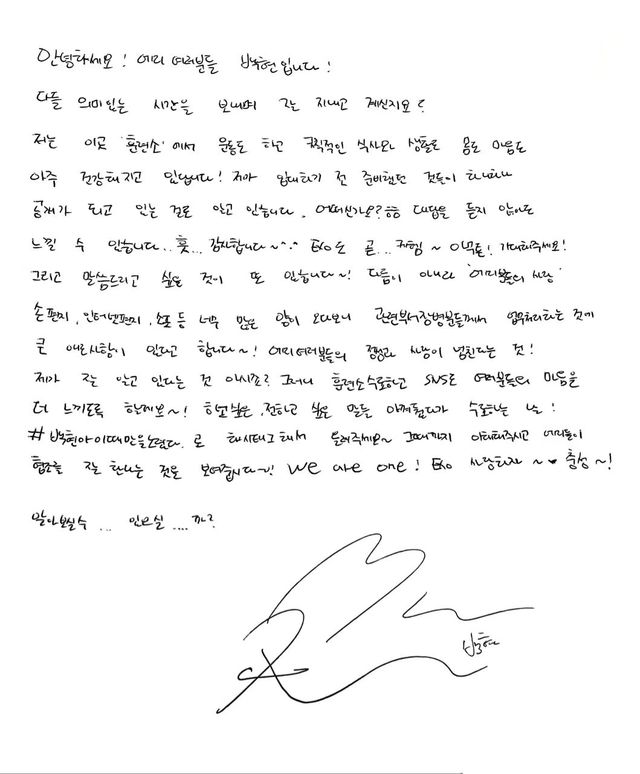 안녕하세요! 에리 여러분들 백현입니다!
다들 의미있는 시간을 보내며 잘 지내고 계신지요?
저는 이곳 '훈련소'에서 운동도 하고 규칙적인 식사와 생활로 몸도 마음도
아주 건강해지고 있답니다! 제가 입대하기 전 준비했던 것들이 하나하나
공개가 되고 있는 걸로 알고 있습니다. 어떠신가요? ㅎㅎ 대답을 듣지 않아도
느낄 수 있습니다.. 훗... 감사합니다~^.^ EXO도 곧... 저힘~ 이녁들! 기대해주세요!
그리고 말씀드리고 싶은 것이 또 있습니다~! 다름이 아니라 '에리분들의 사랑'
손편지, 인터넷편지, 소포 등 너무 많은 양이 오다보니 관련부서장병분들께서 업무처리하는 것에
큰 애로사항이 있다고 합니다~! 에리여러분들의 정성과 사랑이 넘친다는 것!
제가 잘 알고 있다는 것 아시죠? 그러니 훈련소 수료하고 SNS로 여러분들의 마음을
더 느끼도록 할게요~! 하고싶은, 전하고 싶은 말들 아껴뒀다가 수료하는 날!
#백현아이때만을노렸다. 로 해시태그해서 올려주세요~ 그때까지 아껴주시고 에리들이
협조를 잘 한다는 것을 보여줍시다~! We are one! EXO 사랑하자~♥ 충성~!
알아보실수... 있으실....까?
백현